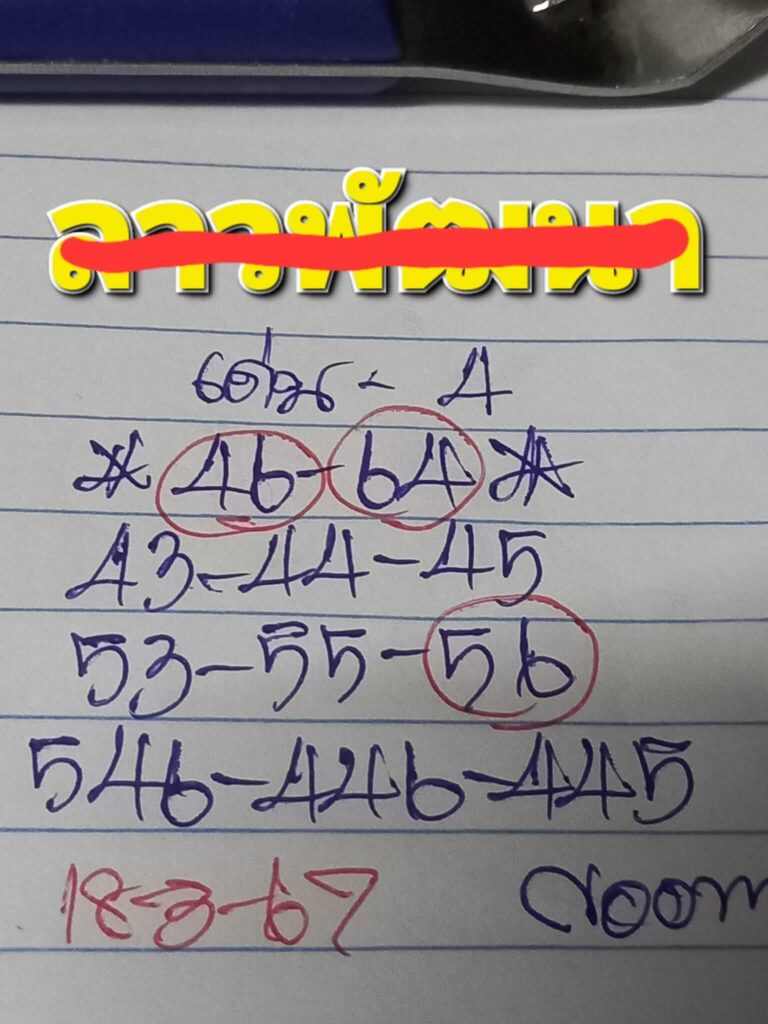 ลาวพัฒนา
เด่น - 4
* 46 - 64 *
43 - 44 - 45
53 - 55 - 56
546 - 446 - 445
18-3-67